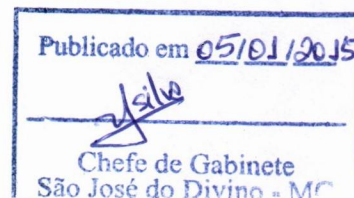 Publicado em 05/01/2015
Ysilva
Chefe de Gabinete
São José do Divino - MG